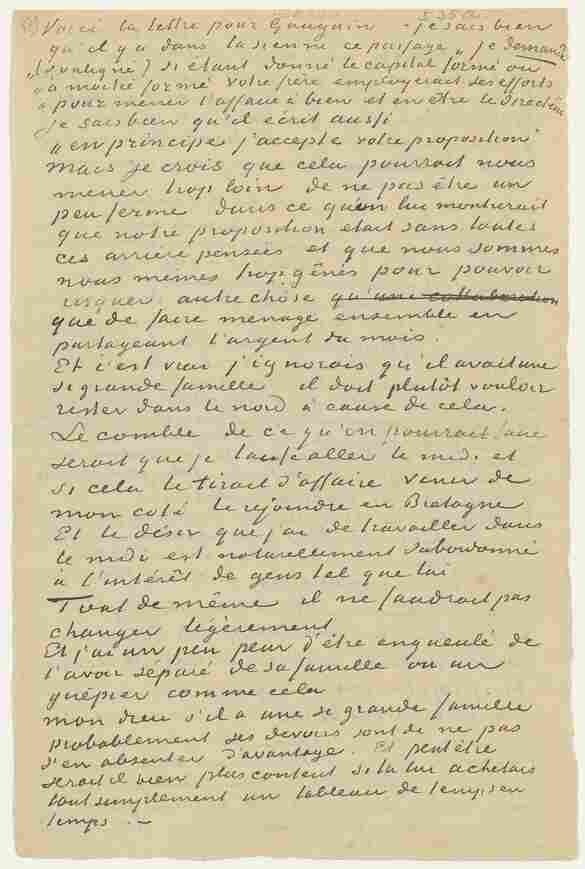 Voici la lettre pour Gauguin – je sais bien
qu'il y a dans la sienne ce passage „je demande
(souligné) si étant donné le capital formé ou
„à moitié formé votre frère employerait ses efforts
„pour mener l'affaire à bien et en être le directeur
je sais bien qu'il écrit aussi
„en principe j'accepte votre proposition”
mais je crois que cela pourrait nous
mener trop loin de ne pas être un
peu ferme dans ce qu'on lui montrerait
que notre proposition etait sans toutes
ces arriere pensées et que nous sommes
nous memes trop gênés pour pouvoir
risquer autre chôse qu'une collaboration
que de faire menage ensemble en
partageant l'argent du mois.
Et c'est vrai j'ignorais qu'il avait une
si grande famille il doit plutôt vouloir
rester dans le nord à cause de cela.
Le comble de ce qu'on pourrait faire
serait que je laisse aller le midi et
si cela le tirait d'affaire venir de
mon coté le rejoindre en Bretagne
Et le désir que j'ai de travailler dans
le midi est naturellement subordonné
à l'intérêt de gens tel que lui
Tout de même il ne faudrait pas
changer légèrement
Et j'ai un peu peur d'être engueulé de
l'avoir séparé de sa famille ou un
guépier comme cela
mon dieu s'il a une si grande famille
probablement ses devoirs sont de ne pas
s'en absenter d'avantage. Et peut être
serait il bien plus content si tu lui achetais
tout simplement un tableau de temps en
temps. —